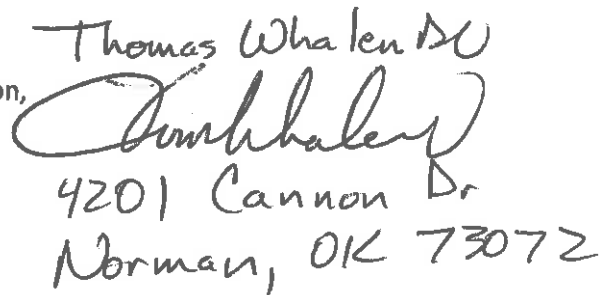 Thomas Whalen DC
on,
Tom Whalen
4201 Cannon Dr
Norman, OK 73072